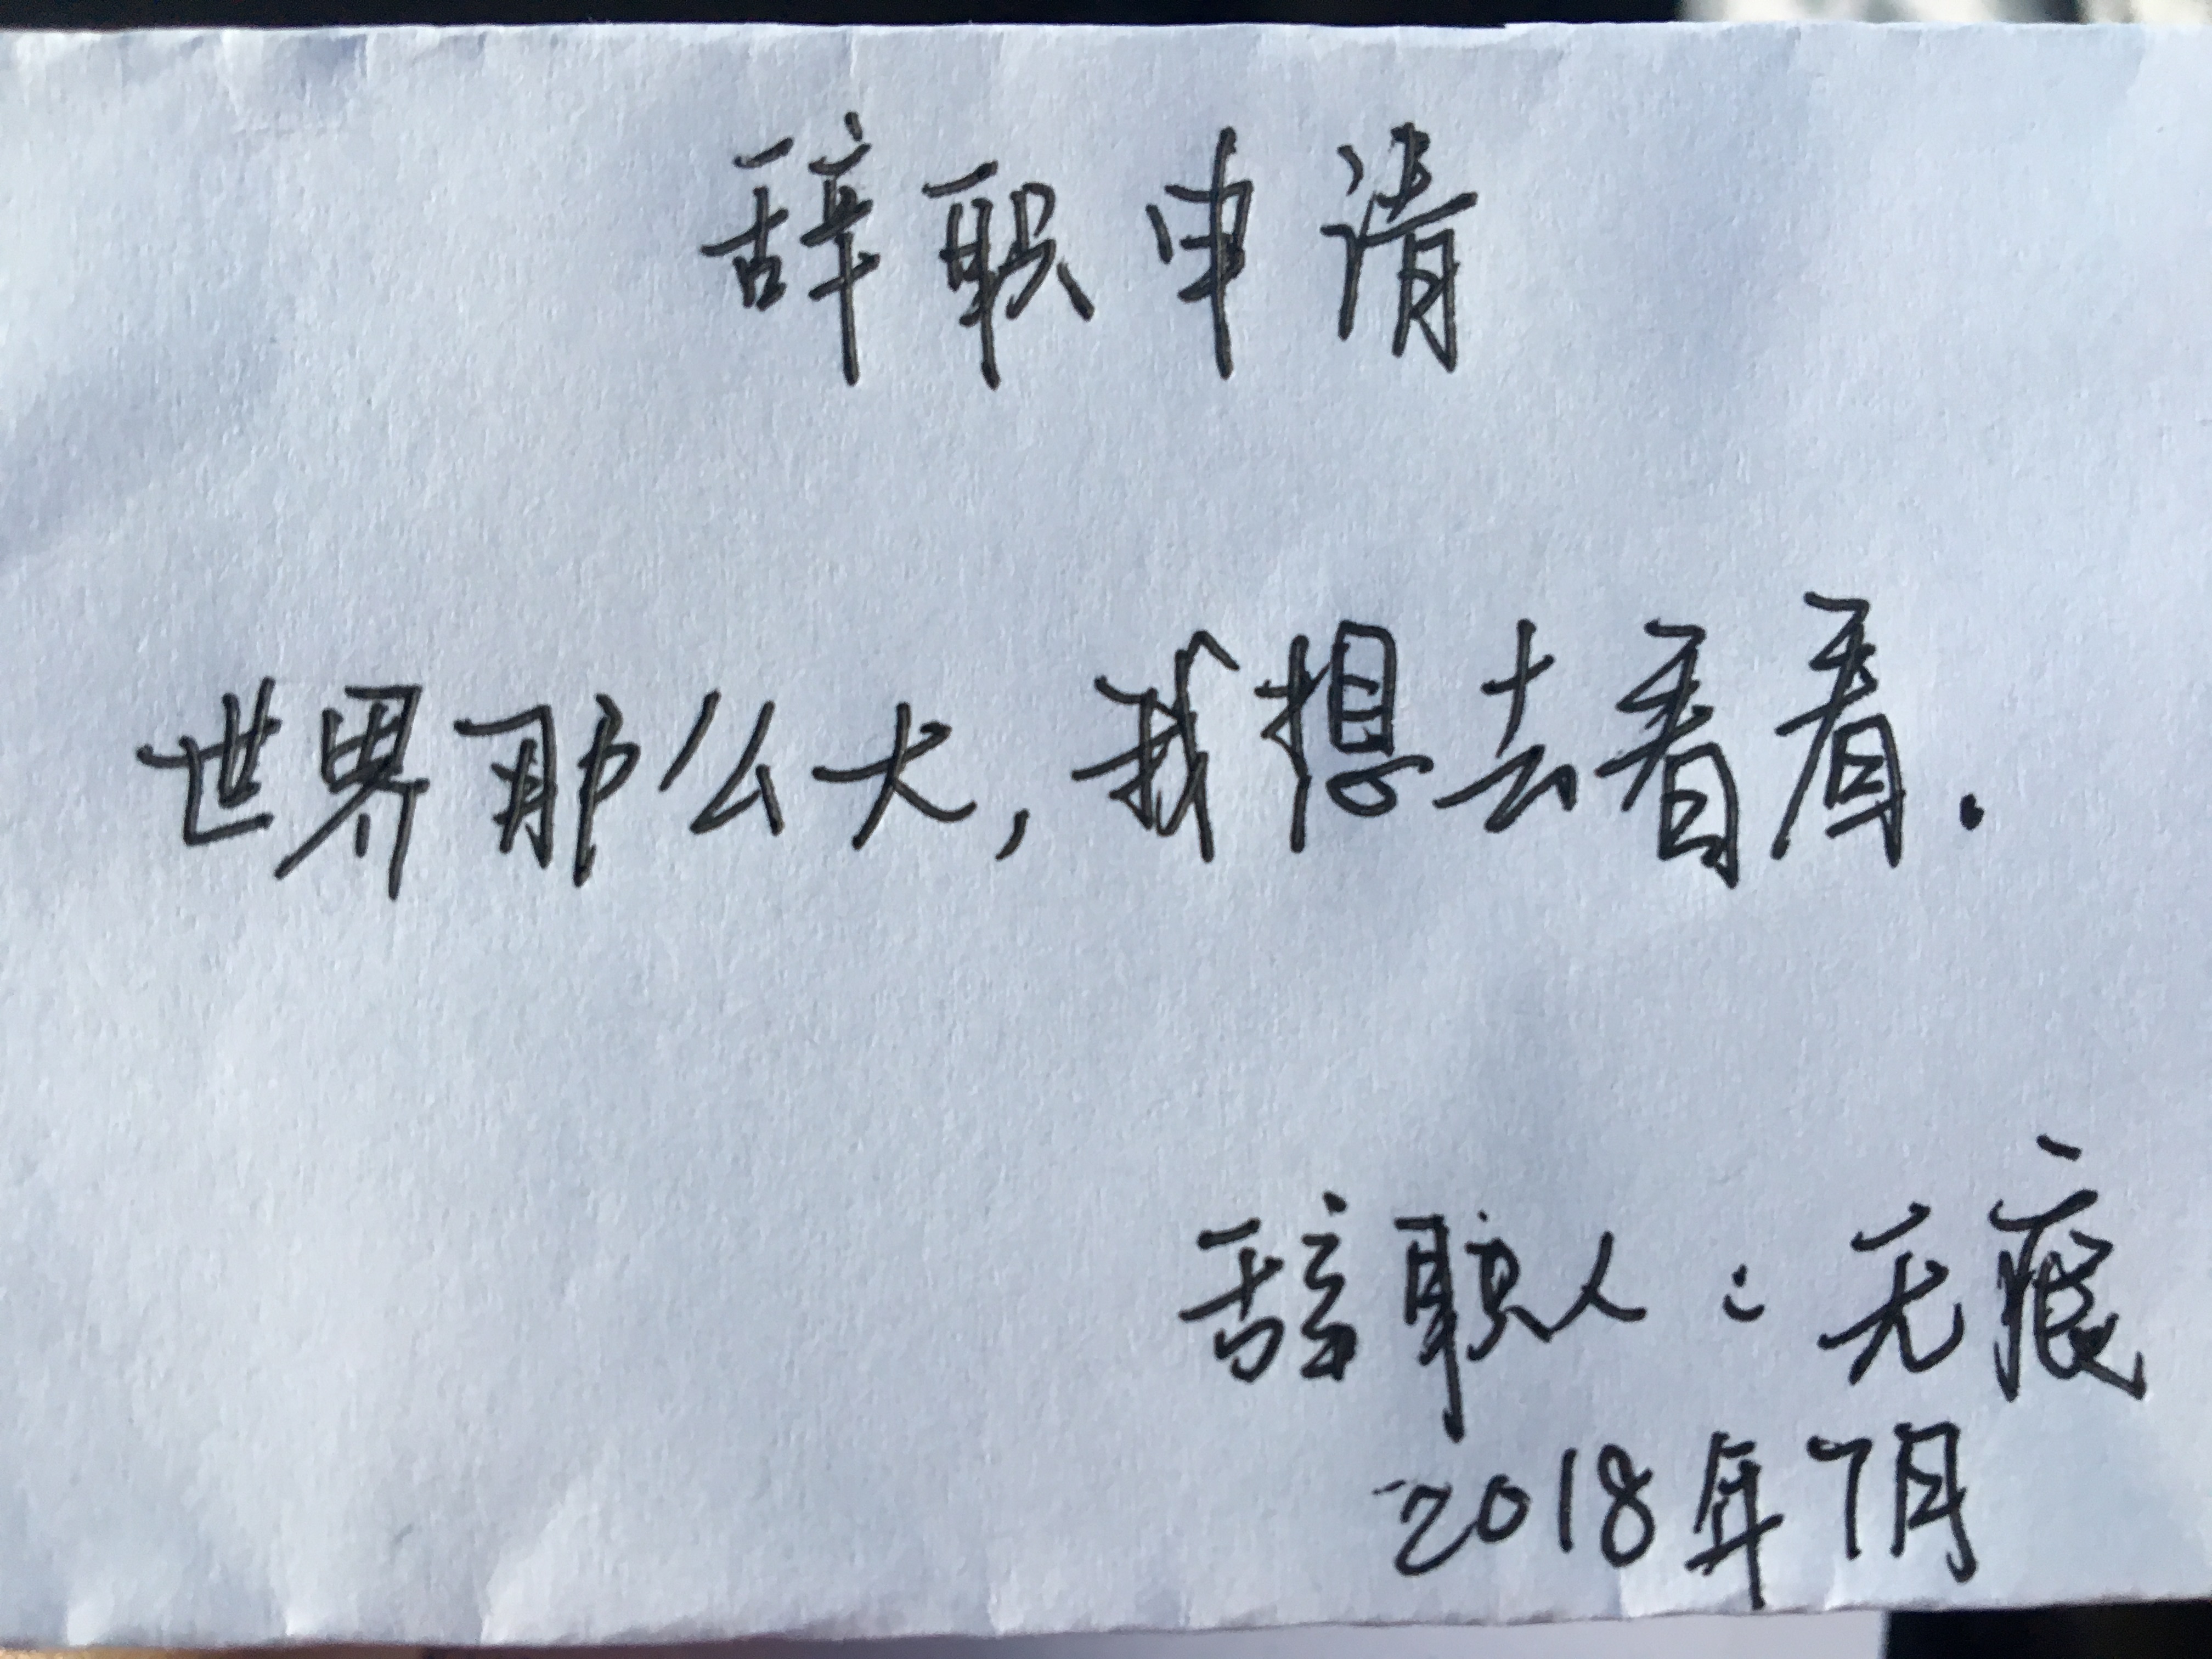 辞职申请
世界那么大,我想去看看.
辞职人:无痕
2018年7月